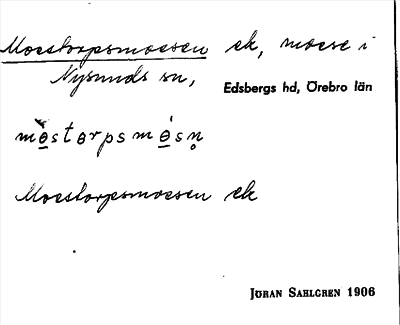 Mostorpsmossen ek, mosse i
Nysunds sn,
Edsbergs hd, Örebro län
mòstorpsmósn̥
Mostorpsmossen ek
JÖRAN SAHLGREN 1906